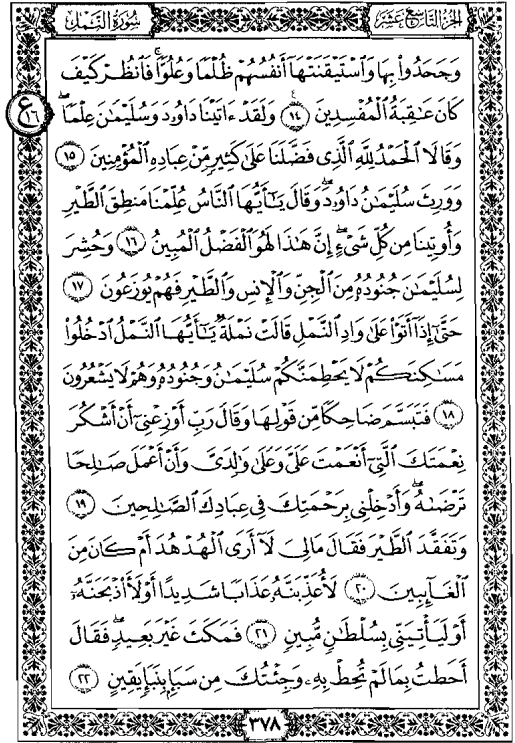 سُورَةُ النَّمْلِ
الجُزْءُ التَّاسِعَ عَشَرَ
وَجَحَدُوا۟ بِهَا وَٱسْتَيْقَنَتْهَآ أَنفُسُهُمْ ظُلْمًا وَعُلُوًّا ۚ فَٱنظُرْ كَيْفَ
كَانَ عَـٰقِبَةُ ٱلْمُفْسِدِينَ ١٤ وَلَقَدْ ءَاتَيْنَا دَاوُۥدَ وَسُلَيْمَـٰنَ عِلْمًا ۖ
ع ١٦
وَقَالَا ٱلْحَمْدُ لِلَّهِ ٱلَّذِى فَضَّلَنَا عَلَىٰ كَثِيرٍ مِّنْ عِبَادِهِ ٱلْمُؤْمِنِينَ ١٥
وَوَرِثَ سُلَيْمَـٰنُ دَاوُۥدَ ۖ وَقَالَ يَـٰٓأَيُّهَا ٱلنَّاسُ عُلِّمْنَا مَنطِقَ ٱلطَّيْرِ
وَأُوتِينَا مِن كُلِّ شَىْءٍ ۖ إِنَّ هَـٰذَا لَهُوَ ٱلْفَضْلُ ٱلْمُبِينُ ١٦ وَحُشِرَ
لِسُلَيْمَـٰنَ جُنُودُهُۥ مِنَ ٱلْجِنِّ وَٱلْإِنسِ وَٱلطَّيْرِ فَهُمْ يُوزَعُونَ ١٧
حَتَّىٰٓ إِذَآ أَتَوْا۟ عَلَىٰ وَادِ ٱلنَّمْلِ قَالَتْ نَمْلَةٌ يَـٰٓأَيُّهَا ٱلنَّمْلُ ٱدْخُلُوا۟
مَسَـٰكِنَكُمْ لَا يَحْطِمَنَّكُمْ سُلَيْمَـٰنُ وَجُنُودُهُۥ وَهُمْ لَا يَشْعُرُونَ
١٨ فَتَبَسَّمَ ضَاحِكًا مِّن قَوْلِهَا وَقَالَ رَبِّ أَوْزِعْنِىٓ أَنْ أَشْكُرَ
نِعْمَتَكَ ٱلَّتِىٓ أَنْعَمْتَ عَلَىَّ وَعَلَىٰ وَٰلِدَىَّ وَأَنْ أَعْمَلَ صَـٰلِحًا
تَرْضَىٰهُ وَأَدْخِلْنِى بِرَحْمَتِكَ فِى عِبَادِكَ ٱلصَّـٰلِحِينَ ١٩
وَتَفَقَّدَ ٱلطَّيْرَ فَقَالَ مَالِىَ لَآ أَرَى ٱلْهُدْهُدَ أَمْ كَانَ مِنَ
ٱلْغَآئِبِينَ ٢٠ لَأُعَذِّبَنَّهُۥ عَذَابًا شَدِيدًا أَوْ لَأَا۟ذْبَحَنَّهُۥٓ
أَوْ لَيَأْتِيَنِّى بِسُلْطَـٰنٍ مُّبِينٍ ٢١ فَمَكَثَ غَيْرَ بَعِيدٍ فَقَالَ
أَحَطتُ بِمَا لَمْ تُحِطْ بِهِۦ وَجِئْتُكَ مِن سَبَإٍۭ بِنَبَإٍ يَقِينٍ ٢٢
٣٧٨